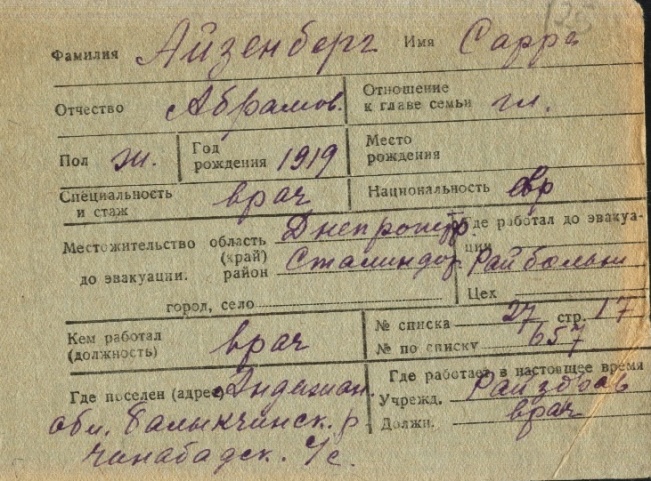 125
Фамилия Айзенберг Имя Сарра
Отчество Абрамов. Отношение к главе семьи гл.
Пол ж. Год рождения 1919 Место рождения
Специальность и стаж врач Национальность евр
Местожительство до эвакуации. область (край) Днепропетр Где работал до эвакуации
район Сталиндор. Райбольни
город, село Цех
Кем работал (должность) врач № списка 27 стр. 17
№ по списку 657
Где поселен (адрес) Андижан. Где работает в настоящее время
обл. Балыкчинск. р Учрежд. Райздрав
Чинабадск. с/с. Должн. врач